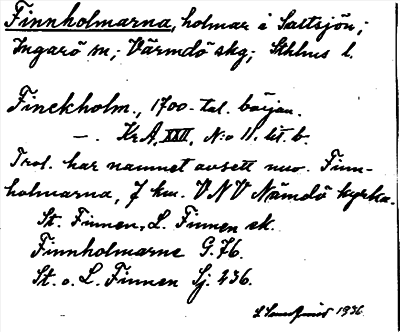 Finnholmarna, holmar i Saltsjön;
Ingarö sn; Värmdö skg; Sthlms l.
Finckholm., 1700-tal. början.
—. Kr.A. XXII, N:o 11. lit. b.
Trol. har namnet avsett nuv. Finn-
holmarna, 7 km. VNV Nämdö kyrka.
St. Finnen, L. Finnen ek.
Finnholmarne G. 76.
St. o. L. Finnen Sj. 236.
1936